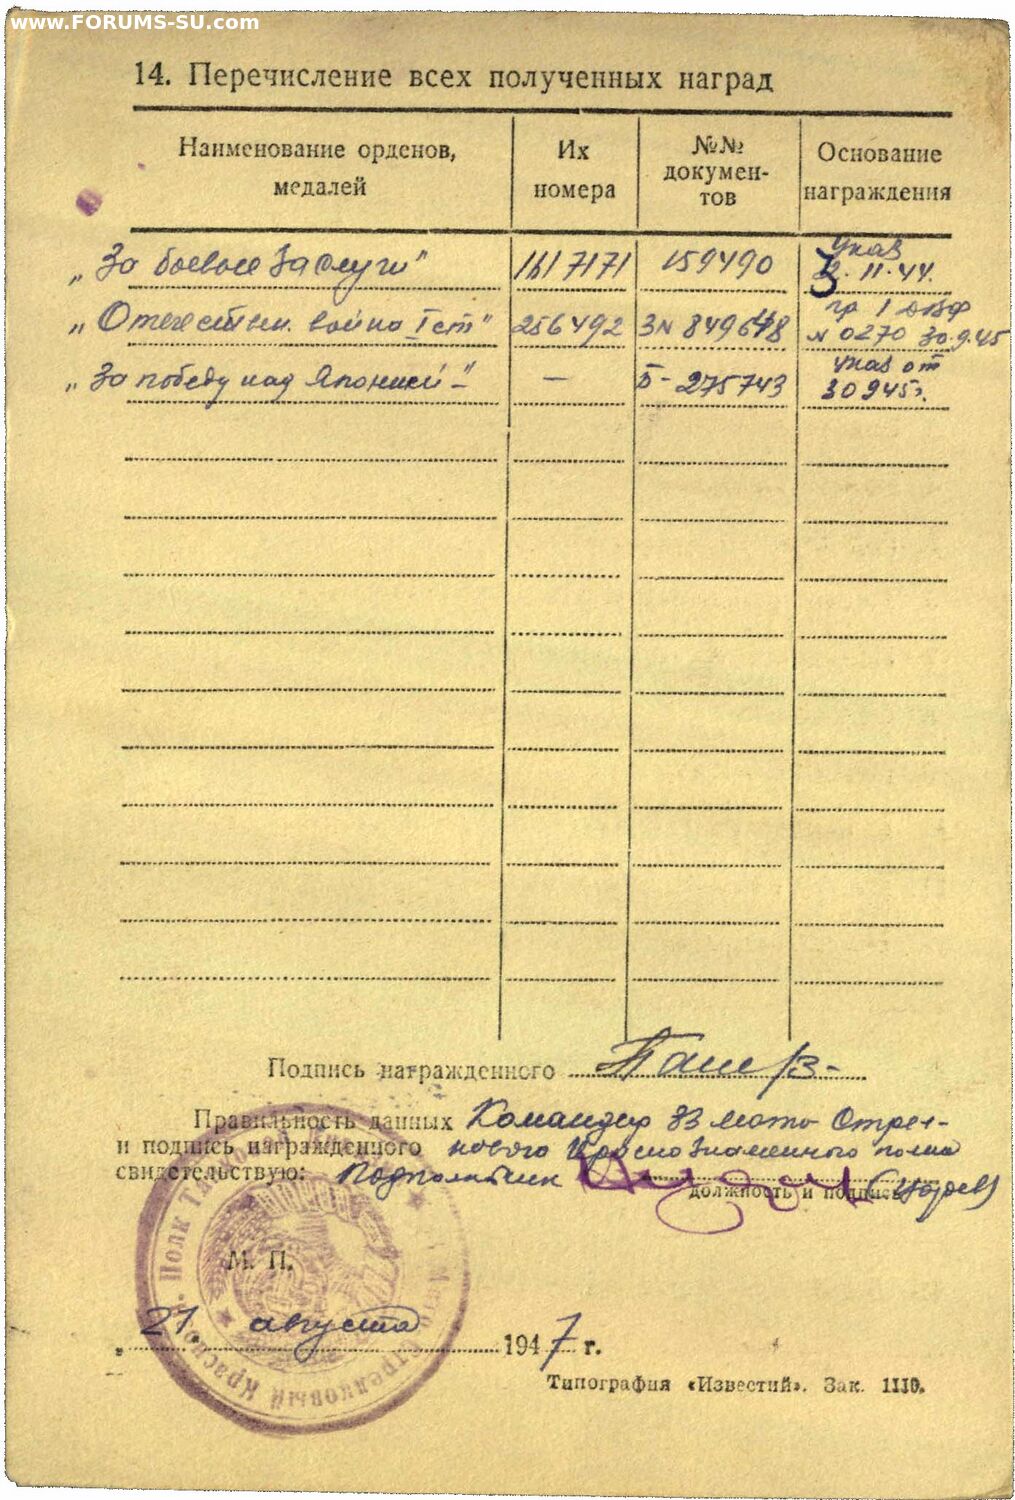 www.FORUMS-SU.com
14. Перечисление всех полученных наград
Наименование орденов, медалей
Их номера
№№ докумен-
тов
Основание награждения
„За боевые заслуги" 1617171 159490 Указ 3.11.44.
„Отечествен. война I ст" 256492 3N 849648 пр 1 ДВФ N 0270 30.9.45
„За победу над Японией" — Б-275743 указ от 30 9 45г.
Подпись награжденного
Правильность данных Командир 83 мото Стрел-
и подпись награжденного кового Краснознаменного полка
свидетельствую: Подполковник
должность и подпись
М. П.
21. августа 1947 г.
Типография «Известий». Зак. 1110.